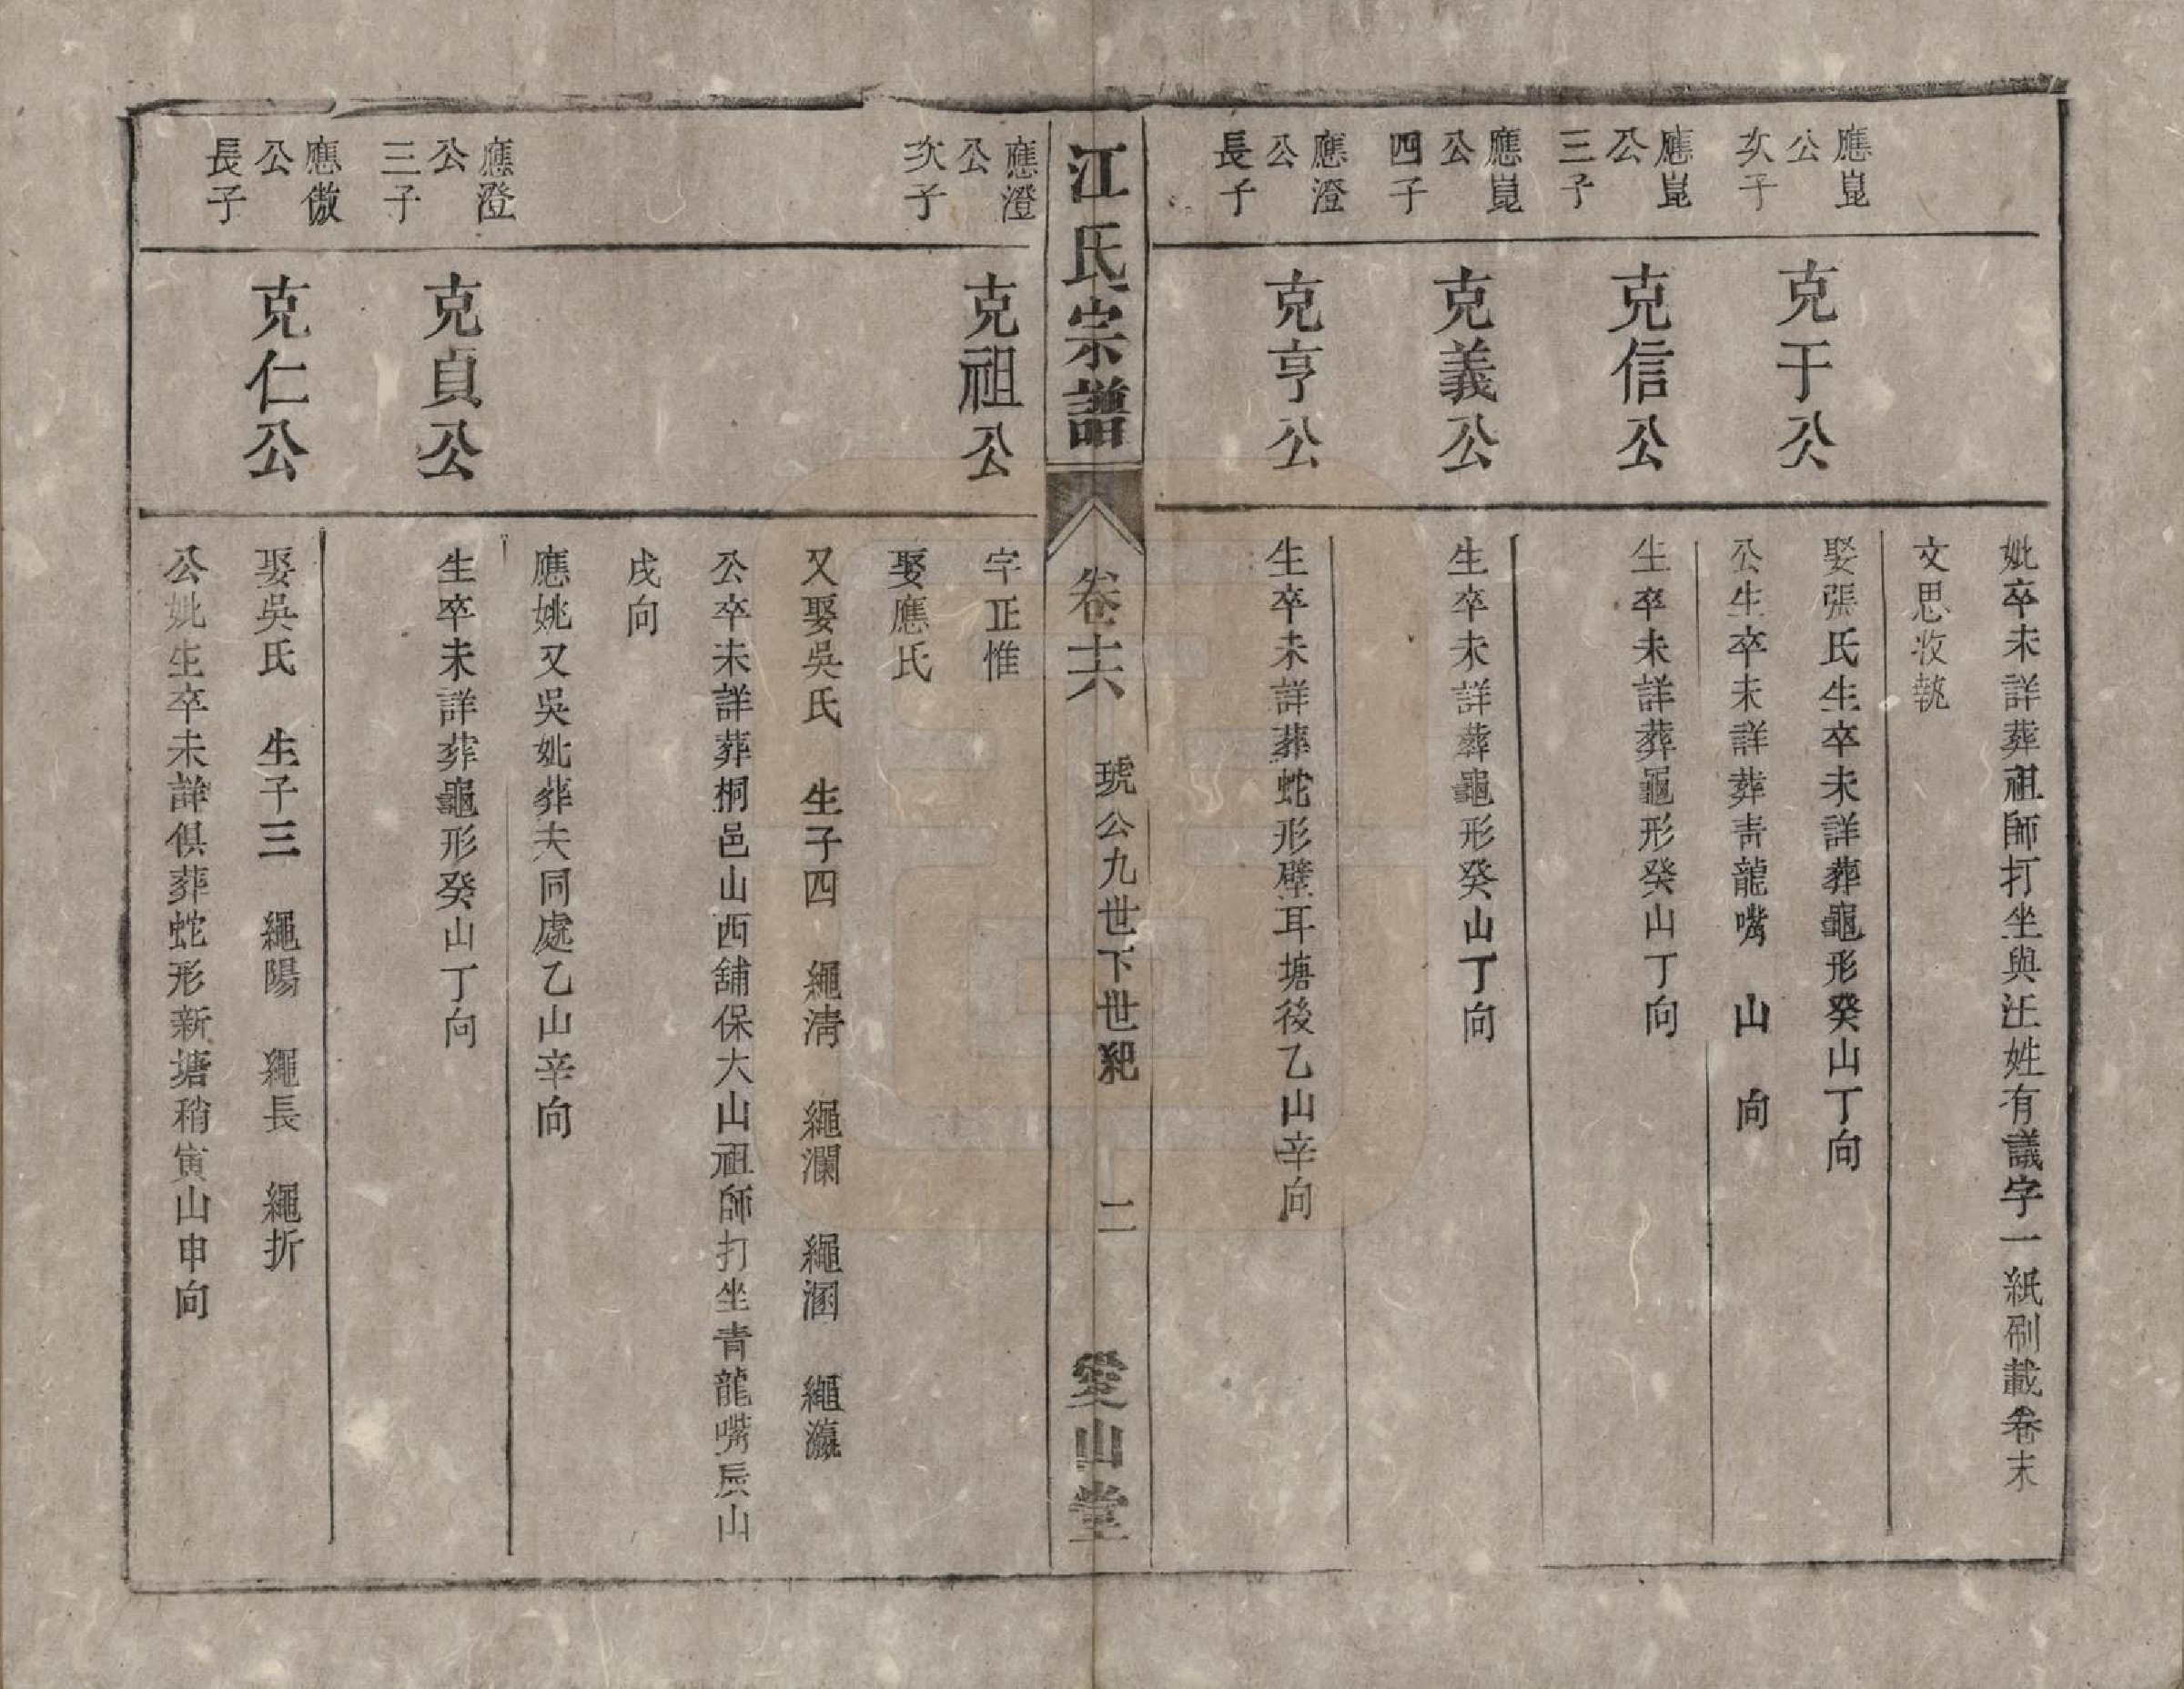 妣卒未詳葬祖師打坐與汪姓有議字一紙刷載卷末
文思收執
應崑公次子
克于公
娶張氏生卒未詳葬龜形癸山丁向
公生卒未詳葬青龍嘴　山　向
應崑公三子
克信公
生卒未詳葬龜形癸山丁向
應崑公四子
克義公
生卒未詳葬龜形癸山丁向
應澄公長子
克亨公
生卒未詳葬蛇形壁耳塘後乙山辛向
江氏宗譜　卷十六　琥公九世下世紀　二　愛山堂
應澄公次子
克祖公
字正惟
娶應氏
又娶吳氏　生子四　繩淸　繩瀾　繩涵　繩瀛
公卒未詳葬桐邑山西舖保大山祖師打坐青龍嘴辰山
戌向
應姚又吳妣葬夫同處乙山辛向
應澄公三子
克貞公
生卒未詳葬龜形癸山丁向
應傲公長子
克仁公
娶吳氏　生子三　繩陽　繩長　繩折
公妣生卒未詳俱葬蛇形新塘稍寅山申向